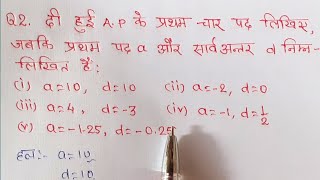 Q.2. दी हुई A.P के प्रथम चार पद लिखिए,
जबकि प्रथम पद a और सार्वअन्तर d निम्न-
लिखित हैं:
(i) a=10, d=10 (ii) a=-2, d=0
(iii) a=4, d=-3 (iv) a=-1, d=1/2
(v) a=-1.25, d=-0.25
हल:- a=10
d=10